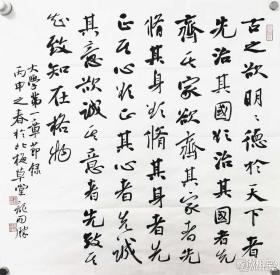 古之欲明〻德於天下者
先治其國欲治其國者先
齊其家欲齊其家者先
脩其身欲脩其身者先
正其心欲正其心者先誠
其意欲誠其意者先致其
知致知在格物
大學第一章節録
丙申之春於北草堂